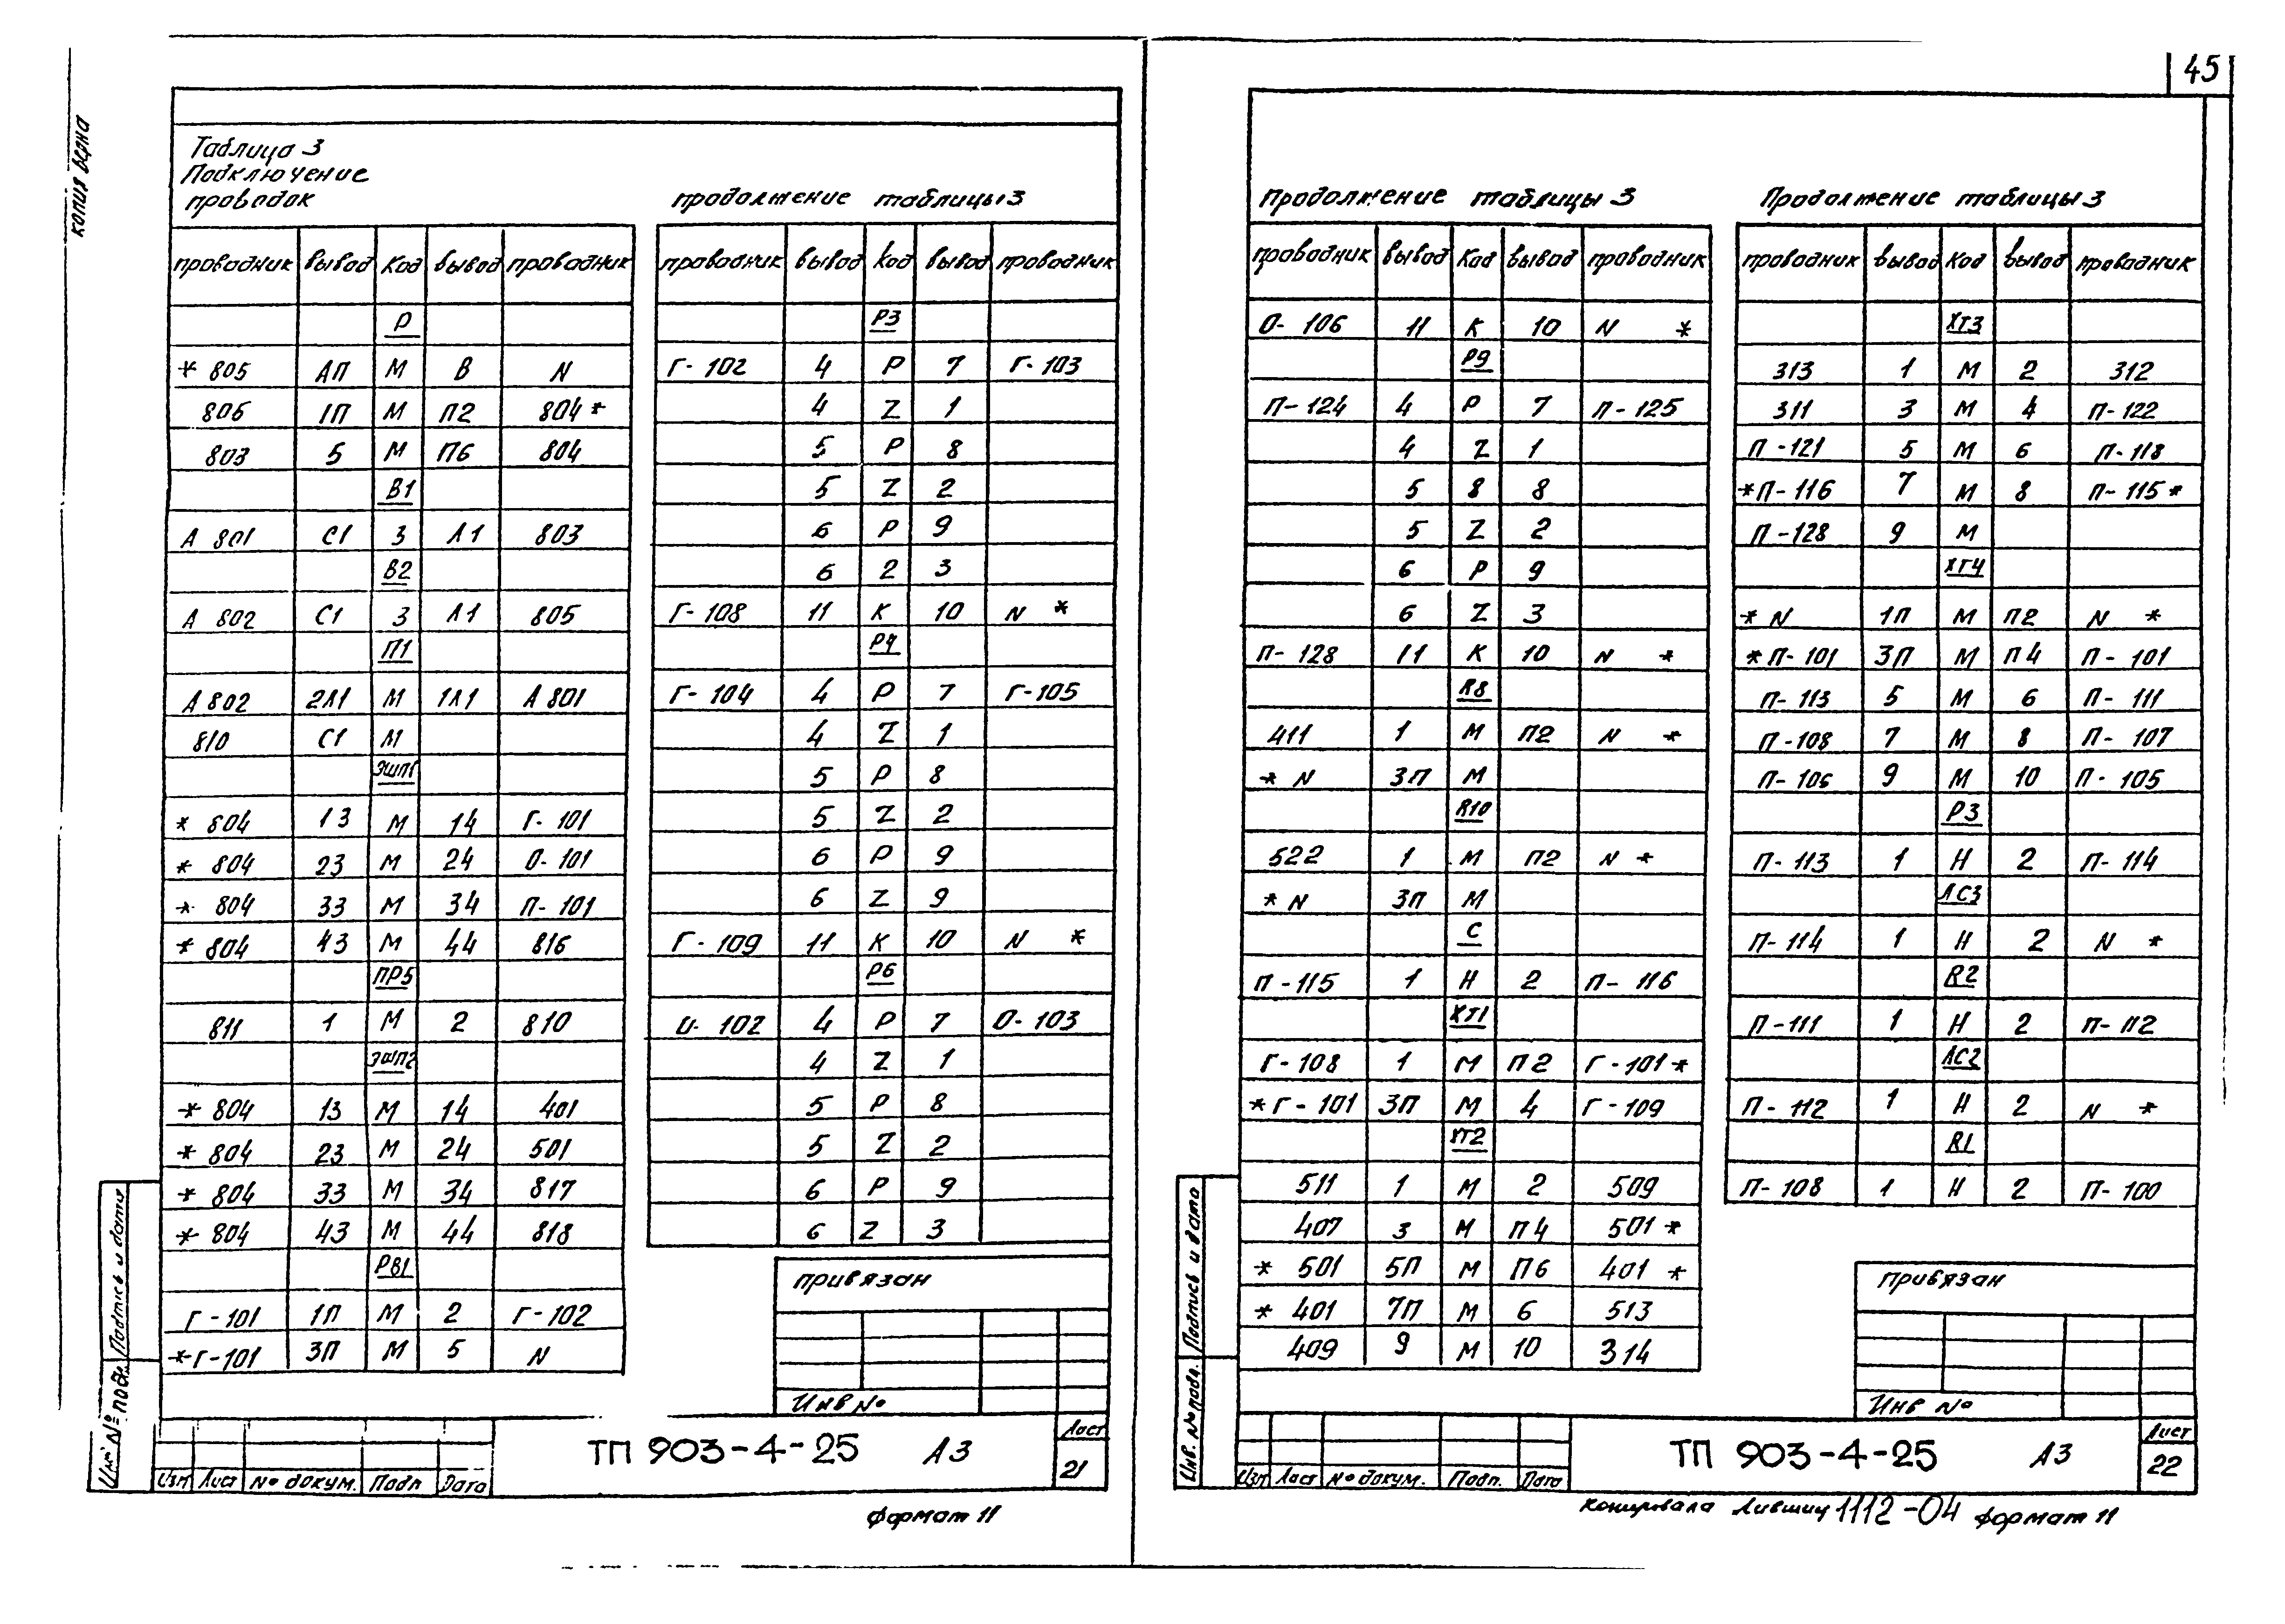 45
копия верна
Таблица 3
Подключение
проводок
проводник вывод Код вывод проводник
Р
* 805 АП М В N
806 1П М П2 804 *
803 5 М П6 804
В1
А 801 С1 З Л1 803
В2
А 802 С1 З Л1 805
П1
А 802 2Л1 М 1Л1 А 801
810 С1 М
ЭШП1
* 804 13 М 14 Г- 101
* 804 23 М 24 О- 101
* 804 33 М 34 П- 101
* 804 43 М 44 816
ПР5
811 1 М 2 810
ЭШП2
* 804 13 М 14 401
* 804 23 М 24 501
* 804 33 М 34 817
* 804 43 М 44 818
РВ1
Г-101 1П М 2 Г-102
* Г-101 3П М 5 N
продолжение таблицы 3
проводник вывод код вывод проводник
Р3
Г- 102 4 Р 7 Г- 103
4 Z 1
5 Р 8
5 Z 2
6 Р 9
6 2 3
Г- 108 11 К 10 N *
Р4
Г- 104 4 Р 7 Г-105
4 Z 1
5 Р 8
5 Z 2
6 Р 9
6 Z 9
Г- 109 11 К 10 N *
Р6
О- 102 4 Р 7 О- 103
4 Z 1
5 Р 8
5 Z 2
6 Р 9
6 Z 3
привязан
Инв №
Инв № подл. Подпись и дата
Изм Лист № докум. Подп Дата
ТП 903-4-25 А3
Лист
21
Формат 11
Продолжение таблицы 3
проводник вывод Код вывод проводник
О- 106 11 К 10 N *
Р9
П- 124 4 Р 7 П- 125
4 Z 1
5 8 8
5 Z 2
6 Р 9
6 Z 3
П- 128 11 К 10 N *
R8
411 1 М П2 N *
* N 3П М
R10
522 1 М П2 N *
* N 3П М
С
П -115 1 Н 2 П- 116
ХТ1
Г- 108 1 М П2 Г -101 *
* Г- 101 3П М 4 Г- 109
ХТ2
511 1 М 2 509
407 3 М П4 501 *
* 501 5П М П6 401 *
* 401 7П М 6 513
409 9 М 10 314
Продолжение таблицы 3
проводник вывод Код вывод проводник
ХТ3
313 1 М 2 312
311 3 М 4 П- 122
П -121 5 М 6 П- 118
* П- 116 7 М 8 П- 115 *
П -128 9 М
ХТ4
* N 1П М П2 N *
* П- 101 3П М П4 П- 101
П- 113 5 М 6 П- 111
П -108 7 М 8 П- 107
П- 106 9 М 10 П- 105
Р3
П- 113 1 Н 2 П- 114
ЛС3
П- 114 1 Н 2 N *
R2
П -111 1 Н 2 П- 112
ЛС2
П- 112 1 Н 2 N *
R1
П- 108 1 Н 2 П- 100
привязан
Инв №
Инв. № подл. Подпись и дата
Изм Лист № докум. Подп. Дата
ТП 903-4-25 А3
Лист
22
копировала Лившиц 1112-04 Формат 11